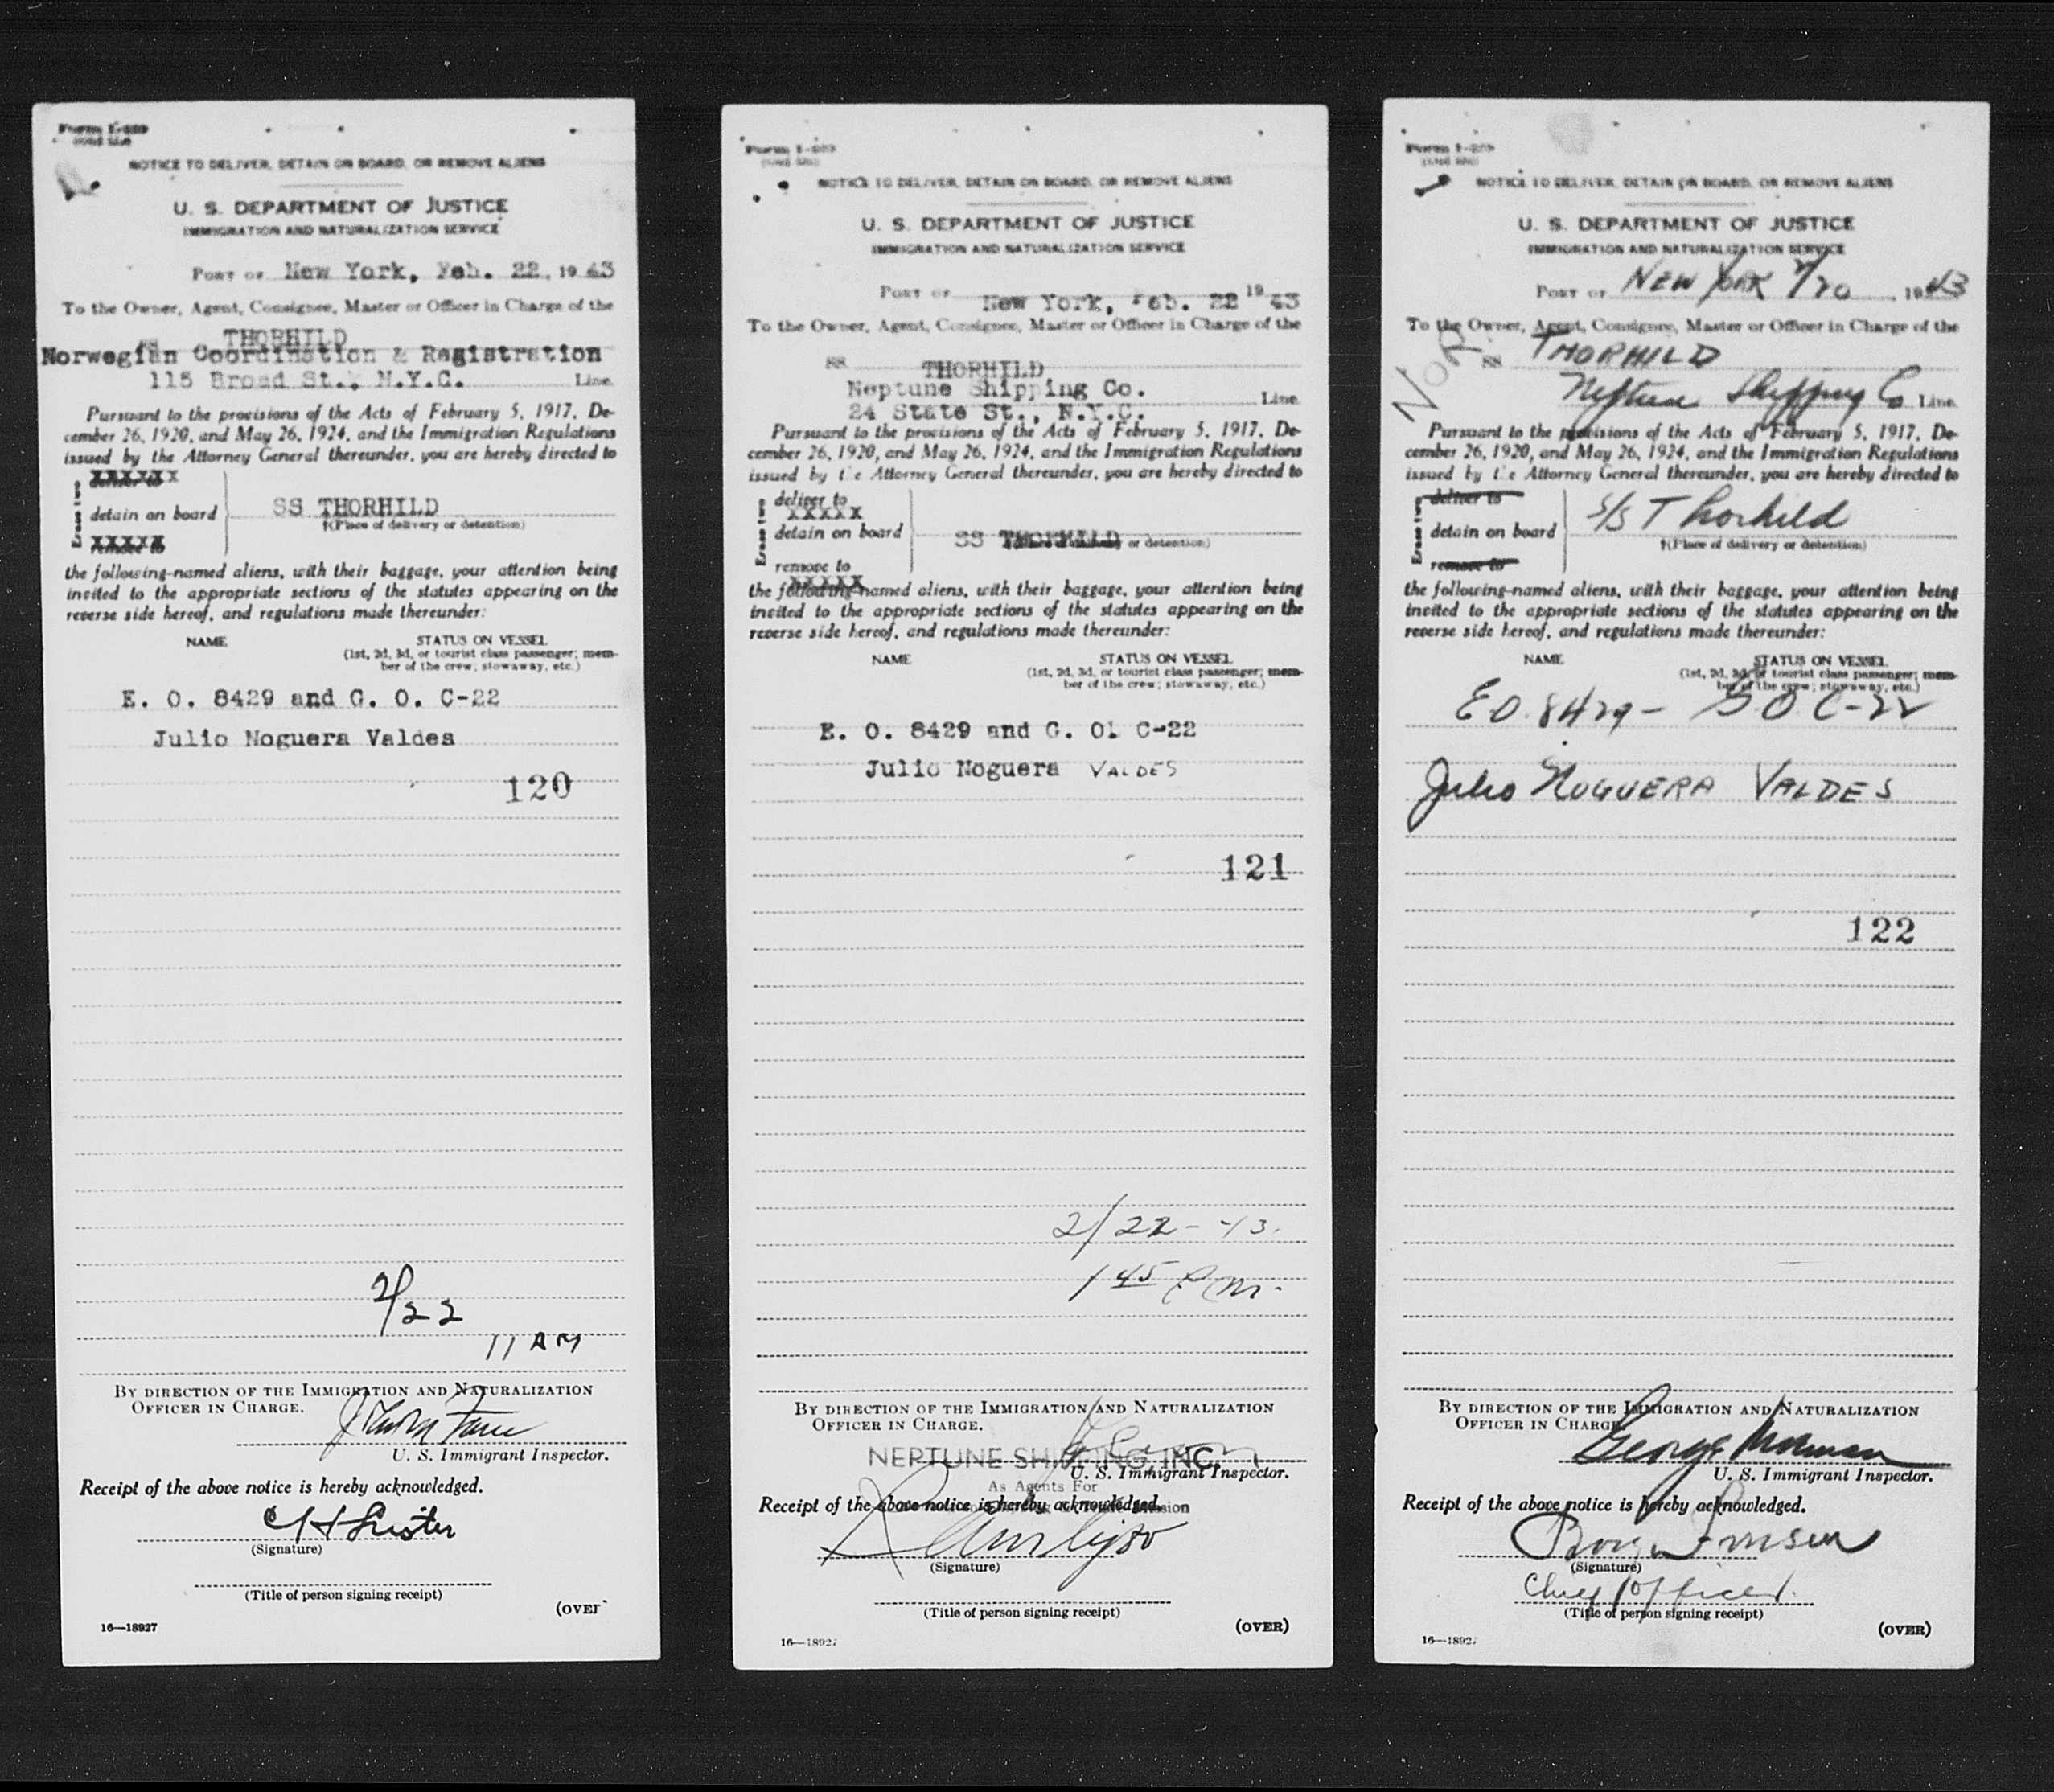 Form I-259
NOTICE TO DELIVER, DETAIN ON BOARD, OR REMOVE ALIENS
U. S. DEPARTMENT OF JUSTICE
IMMIGRATION AND NATURALIZATION SERVICE
PORT OF New York, Feb. 22, 1943
To the Owner, Agent, Consignee, Master or Officer in Charge of the
SS THORHILD
Norwegian Coordination & Registration
115 Broad St., N.Y.C. Line
Pursuant to the provisions of the Acts of February 5, 1917, De-
cember 26, 1920, and May 26, 1924, and the Immigration Regulations
issued by the Attorney General thereunder, you are hereby directed to
Erase two
deliver to
XXXXXX
detain on board SS THORHILD
†(Place of delivery or detention)
remove to
XXXXX
the following-named aliens, with their baggage, your attention being
invited to the appropriate sections of the statutes appearing on the
reverse side hereof, and regulations made thereunder:
NAME STATUS ON VESSEL
(1st, 2d, 3d, or tourist class passenger; mem-
ber of the crew; stowaway, etc.)
E. O. 8429 and G. O. C-22
Julio Noguera Valdes
120
2/22
11 AM
BY DIRECTION OF THE IMMIGRATION AND NATURALIZATION
OFFICER IN CHARGE.
U. S. Immigrant Inspector.
Receipt of the above notice is hereby acknowledged.
(Signature)
(Title of person signing receipt)
(OVER
16—18927
Form I-259
NOTICE TO DELIVER, DETAIN ON BOARD, OR REMOVE ALIENS
U. S. DEPARTMENT OF JUSTICE
IMMIGRATION AND NATURALIZATION SERVICE
PORT OF New York, Feb. 22 1943
To the Owner, Agent, Consignee, Master or Officer in Charge of the
SS THORHILD
Neptune Shipping Co. Line
24 State St., N.Y.C.
Pursuant to the provisions of the Acts of February 5, 1917, De-
cember 26, 1920, and May 26, 1924, and the Immigration Regulations
issued by the Attorney General thereunder, you are hereby directed to
Erase two
deliver to
XXXXX
detain on board SS THORHILD
or detention)
remove to
XXXXX
the following-named aliens, with their baggage, your attention being
invited to the appropriate sections of the statutes appearing on the
reverse side hereof, and regulations made thereunder:
NAME STATUS ON VESSEL
(1st, 2d, 3d, or tourist class passenger; mem-
ber of the crew; stowaway, etc.)
E. O. 8429 and G. O. C-22
Julio Noguera VALDES
121
2/22-43.
1 45 P.M.
BY DIRECTION OF THE IMMIGRATION AND NATURALIZATION
OFFICER IN CHARGE.
NEPTUNE SHIPPING, INC.
U. S. Immigrant Inspector.
As Agents For
Receipt of the above notice is hereby acknowledged.
(Signature)
(Title of person signing receipt)
(OVER)
16—18927
Form I-259
NOTICE TO DELIVER, DETAIN ON BOARD, OR REMOVE ALIENS
U. S. DEPARTMENT OF JUSTICE
IMMIGRATION AND NATURALIZATION SERVICE
PORT OF NEW YORK 2/20, 1943
To the Owner, Agent, Consignee, Master or Officer in Charge of the
Nor.
SS THORHILD
Neptune Shipping Co Line
Pursuant to the provisions of the Acts of February 5, 1917, De-
cember 26, 1920, and May 26, 1924, and the Immigration Regulations
issued by the Attorney General thereunder, you are hereby directed to
Erase two
deliver to
detain on board S/S Thorhild
†(Place of delivery or detention)
remove to
the following-named aliens, with their baggage, your attention being
invited to the appropriate sections of the statutes appearing on the
reverse side hereof, and regulations made thereunder:
NAME STATUS ON VESSEL
(1st, 2d, 3d, or tourist class passenger; mem-
ber of the crew; stowaway, etc.)
E O. 8429 - G O. C-22
Julio NOGUERA VALDES
122
BY DIRECTION OF THE IMMIGRATION AND NATURALIZATION
OFFICER IN CHARGE.
George
U. S. Immigrant Inspector.
Receipt of the above notice is hereby acknowledged.
(Signature)
Chief Officer.
(Title of person signing receipt)
(OVER)
16—18927